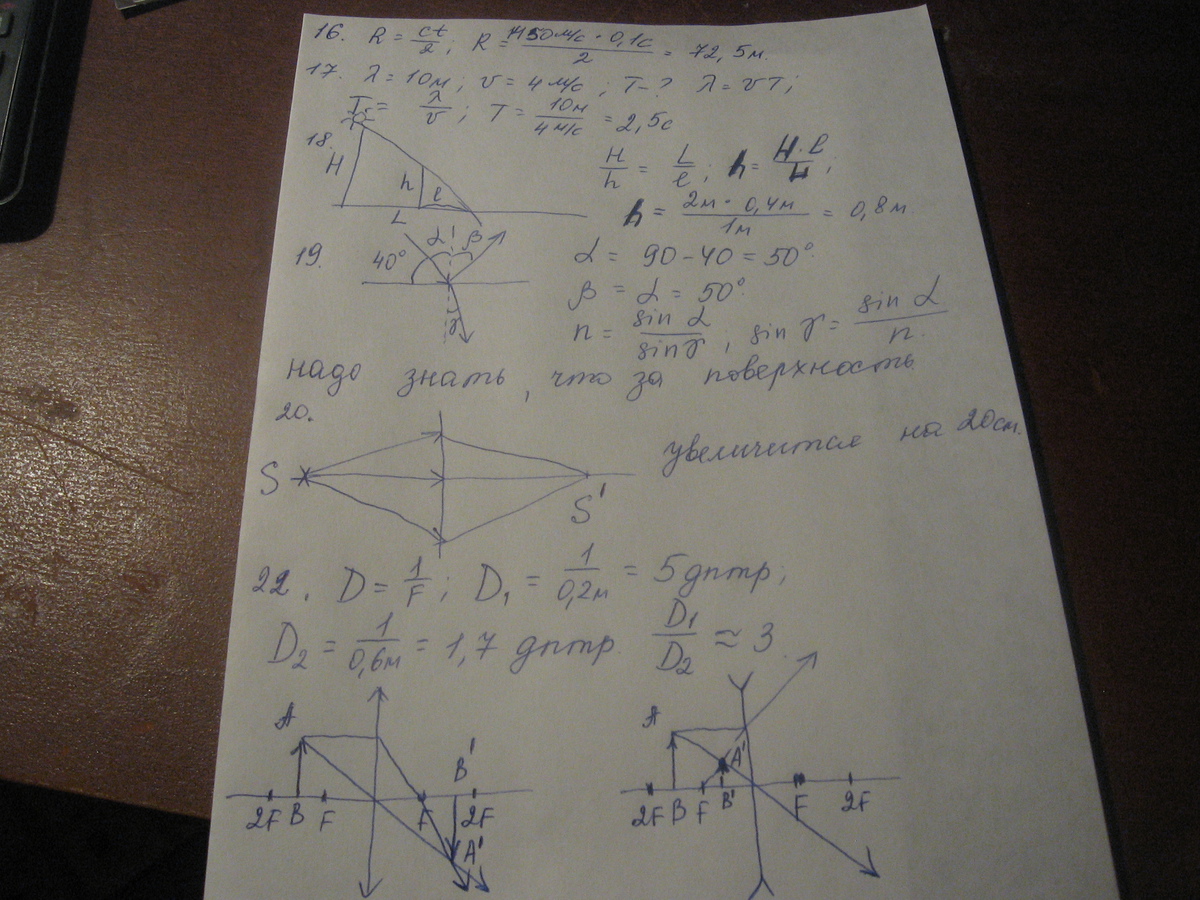 16. R = ct/2; R = 1450 м/с · 0,1с / 2 = 72,5 м.
17. λ = 10м; υ = 4 м/с; T - ? λ = υT;
T = λ/υ; T = 10м / 4м/с = 2,5с
18. H h l L H/h = L/l; h = H·l/L;
h = 2м · 0,4м / 1м = 0,8 м
19. 40° α β γ α = 90 - 40 = 50°
β = α = 50°
n = sin α / sin γ, sin γ = sin α / n.
надо знать, что за поверхность.
20.
S S' увеличится на 20см.
22. D = 1/F; D₁ = 1/0,2м = 5 дптр;
D₂ = 1/0,6м = 1,7 дптр. D₁/D₂ ≈ 3
A B' 2F B F F 2F A'
A A' 2F B F B' F 2F